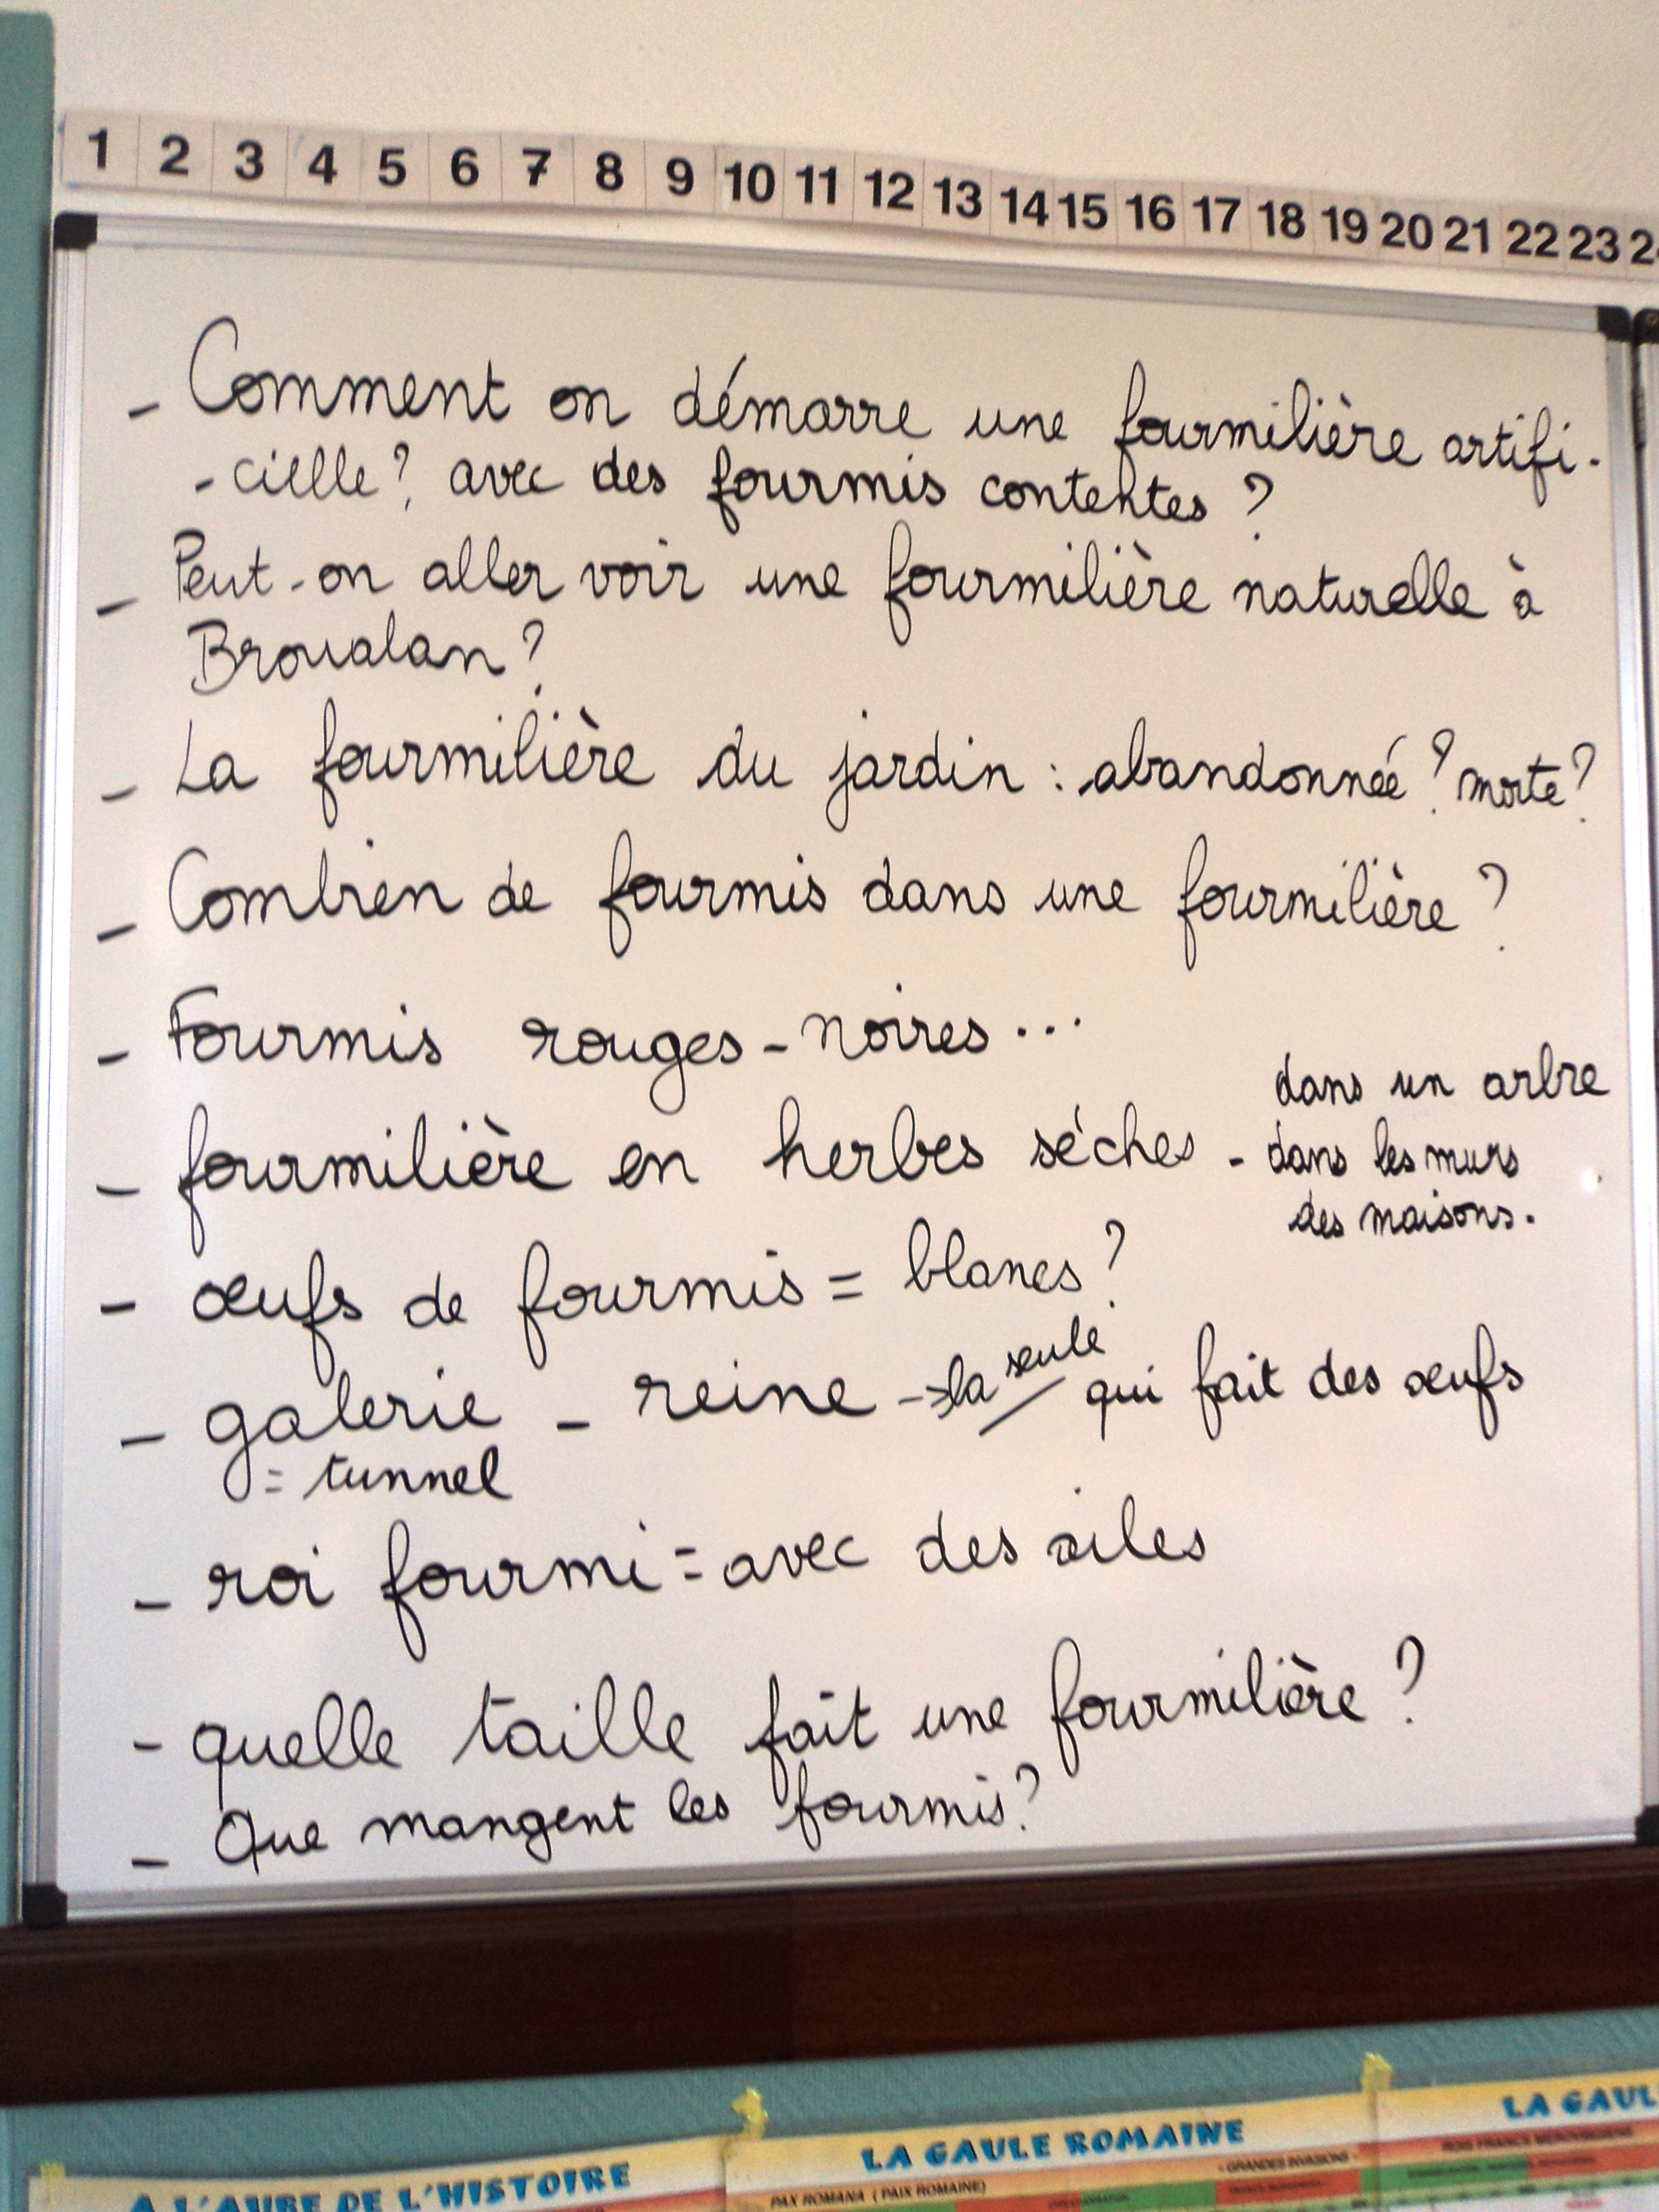 1 2 3 4 5 6 7 8 9 10 11 12 13 14 15 16 17 18 19 20 21 22 23
- Comment on démarre une fourmilière artifi-
-cielle? avec des fourmis contentes ?
- Peut-on aller voir une fourmilière naturelle à
Broualan ?
- La fourmilière du jardin : abandonnée ? morte ?
- Combien de fourmis dans une fourmilière ?
- Fourmis rouges - noires ...
- fourmilière en herbes séches - dans un arbre
dans les murs
des maisons.
- œufs de fourmis = blancs ?
- galerie - reine -> la seule qui fait des œufs
= tunnel
- roi fourmi = avec des ailes
- quelle taille fait une fourmilière ?
- Que mangent les fourmis ?
A L'AUBE DE L'HISTOIRE
LA GAULE ROMAINE
LA GAUL
- GRANDES INVASIONS -
PAX ROMANA ( PAIX ROMAINE)
ROIS FRANCS MÉROVINGIENS